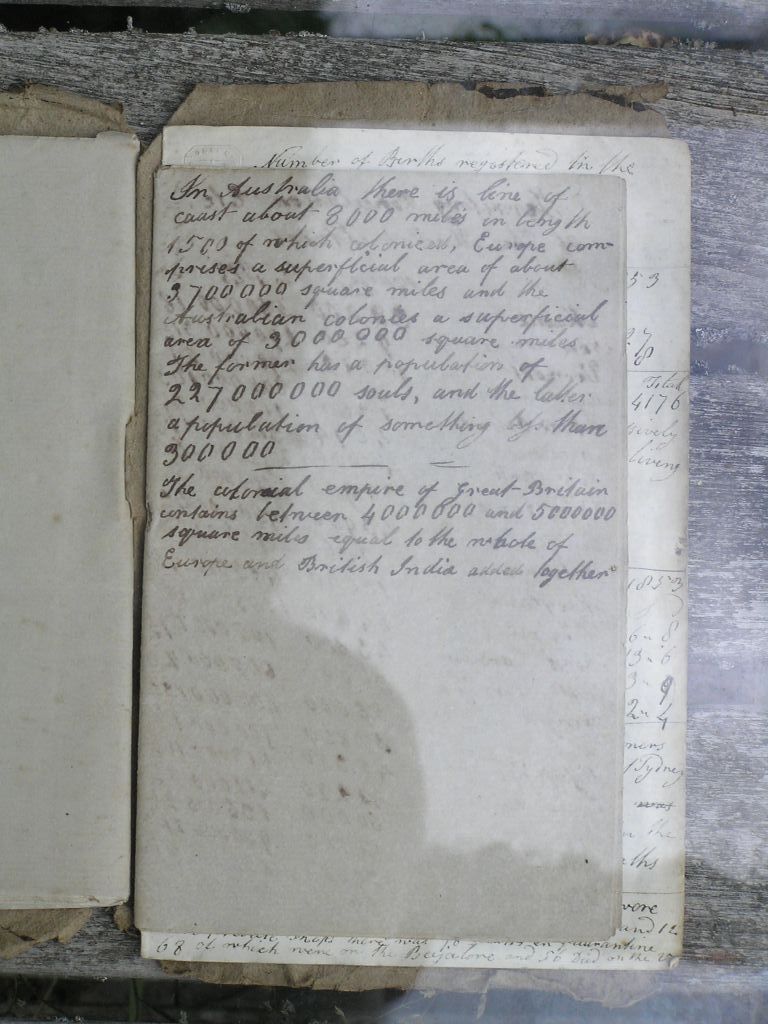 Number of Births registered in the
In Australia there is line of
coast about 8000 miles in length
1500 of which colonised, Europe com-
prises a superficial area of about
3700000 square miles and the
Australian colonies a superficial
area of 3000000 square miles
The former has a population of
227000000 souls, and the latter
a population of something less than
300000
The colonial empire of Great Britain
contains between 4000000 and 5000000
square miles equal to the whole of
Europe and British India added together
53
Total
4176
living
1853
6 " 8
13 " 6
3 " 9
2 " 4
Sydney
was
in the
were
and 12
68 of which were on the Beejalore and 56 Died on the